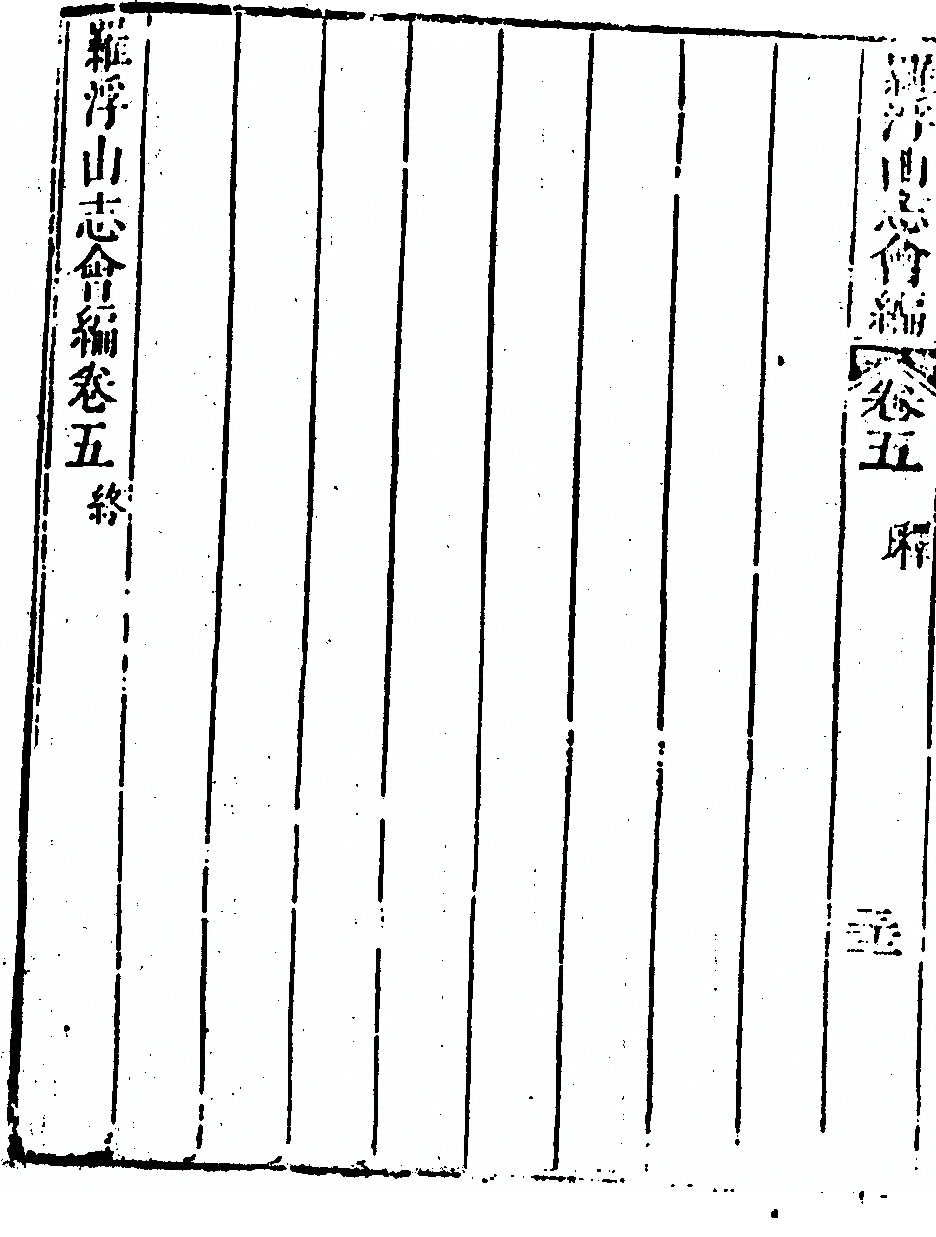 羅浮山志會編 卷五
羅浮山志會編卷五 終